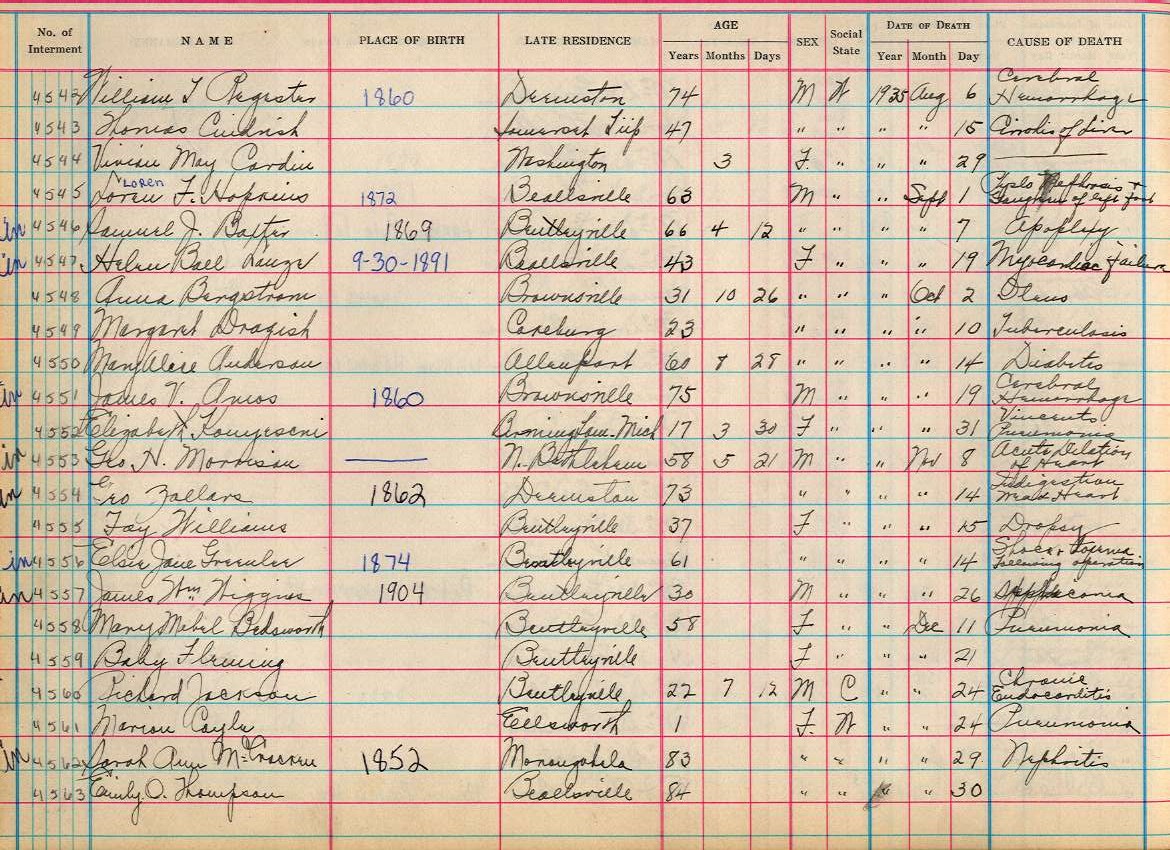 No. of Interment NAME PLACE OF BIRTH LATE RESIDENCE AGE Years Months Days SEX Social State DATE OF DEATH Year Month Day CAUSE OF DEATH
4542 William T Register 1860 Deemston 74 M W 1935 Aug 6 Cerebral Hemorrhage
4543 Thomas Somerset Twp 47 " " " " 15 of Liver
4544 Vivian May Cardin Washington 3 F. " " " 29
4545 Loren Loren F. Hopkins 1872 Beallsville 63 M " " Sept 1 + of left foot
in 4546 Samuel J. 1869 Bentleyville 66 4 12 " " " " 7 Apoplexy
in 4547 Helen Ball 9-30-1891 Beallsville 43 F " " " 19 Myocardiac Failure
4548 Anna Bergstrom Brownsville 31 10 26 " " " Oct 2 Ileus
4549 Margaret Dragish 23 " " " " 10 Tuberculosis
4550 Mary Alice Anderson Allenport 60 28 " " " " 14 Diabetis
in 4551 James V. Amos 1860 Brownsville 75 M " " " 19 Cerebral Hemorrhage
4552 Elizabeth Mich 17 3 30 F " " " 31 Vincents Pneumonia
in 4553 Geo H. Morrison N. Bethlehem 58 5 21 M " " Nov 8 Acute Dilation of Heart
in 4554 Geo Zollars 1862 Deemston 73 " " " " 14 Indigestion Weak Heart
4555 Fay Williams Bentleyville 37 F " " " 15 Dropsy
in 4556 Elsie Jane Greenlee 1874 Bentleyville 61 " " " " 14 following operation
in 4557 James Wm Wiggins 1904 Bentleyville 30 M " " " 26
4558 Mary Mabel Bedsworth Bentleyville 58 F " " Dec 11 Pneumonia
4559 Baby Fleming Bentleyville F " " " 21
4560 Richard Jackson Bentleyville 22 7 12 M C " " 24 Chronic Endocarditis
4561 Marion Coyle Ellsworth 1 F. W " " 24 Pneumonia
in 4562 Sarah Ann McCracken 1852 Monongahela 83 " " " " 29 Nephritis
4563 Emily O. Thompson Beallsville 84 " " " " 30